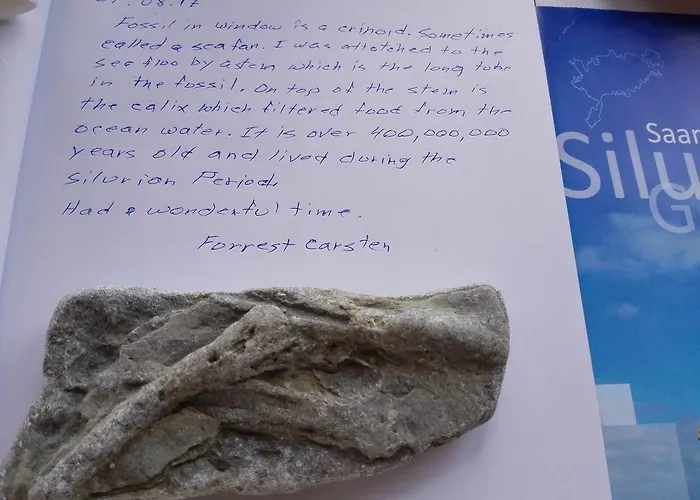 08.17
Fossil in window is a crinoid. Sometimes
called a sea fan. I was attatched to the
see floo by a stem which is the long tube
in the fossil. On top of the stem is
the calix which filtered food from the
ocean water. It is over 400,000,000
years old and lived during the
Silurion Period.
Had a wonderful time.
Forrest Carsten
Saar
Silu
G